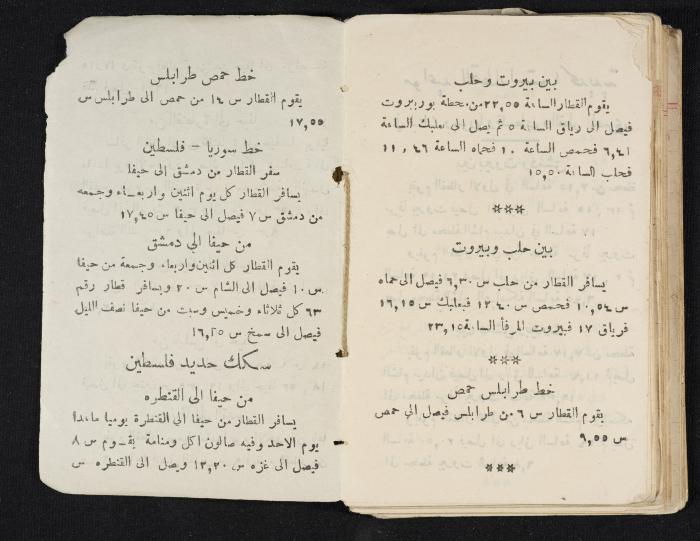 بين بيروت وحلب
يقوم القطار الساعة ٢٢,٥٥ من محطة بور بيروت
فيصل الى رياق الساعة ٥ ثم يصل الى بعلبك الساعة
٦,٤١ فحمص الساعة ١٠ فحماه الساعة ٤٦ , ١١
فحلب الساعة ١٥,٥٠
***
بين حلب وبيروت
يسافر القطار من حلب س ٦,٣٠ فيصل الى حماه
س ١٠,٥٤ فحمص س ١٢,٤٠ فبعلبك س ١٦,١٥
فرياق ١٧ فبيروت المرفأ الساعة ٢٣,١٥
***
خط طرابلس حمص
يقوم القطار س ٦ من طرابلس فيصل الى حمص
س ٩,٥٥
***
خط حمص طرابلس
يقوم القطار س ١٤ من حمص الى طرابلس س
١٧,٥٥
خط سوريا - فلسطين
سفر القطار من دمشق الى حيفا
يسافر القطار كل يوم اثنين واربعاء وجمعه
من دمشق س ٧ فيصل الى حيفا س ١٧,٤٥
من حيفا الى دمشق
يقوم القطار كل اثنين واربعاء وجمعة من حيفا
س ١٠ فيصل الى الشام س ٢٠ ويسافر قطار رقم
٦٣ كل ثلاثاء وخميس وسبت من حيفا نصف الليل
فيصل الى سمخ س
سكك حديد فلسطين
من حيفا الى القنطره
يسافر القطار من حيفا الى القنطرة يوميا ماعدا
يوم الاحد وفيه صالون اكل ومنامة يقوم س ٨
فيصل الى غزه س ١٣,٢٠ ويصل الى القنطره س